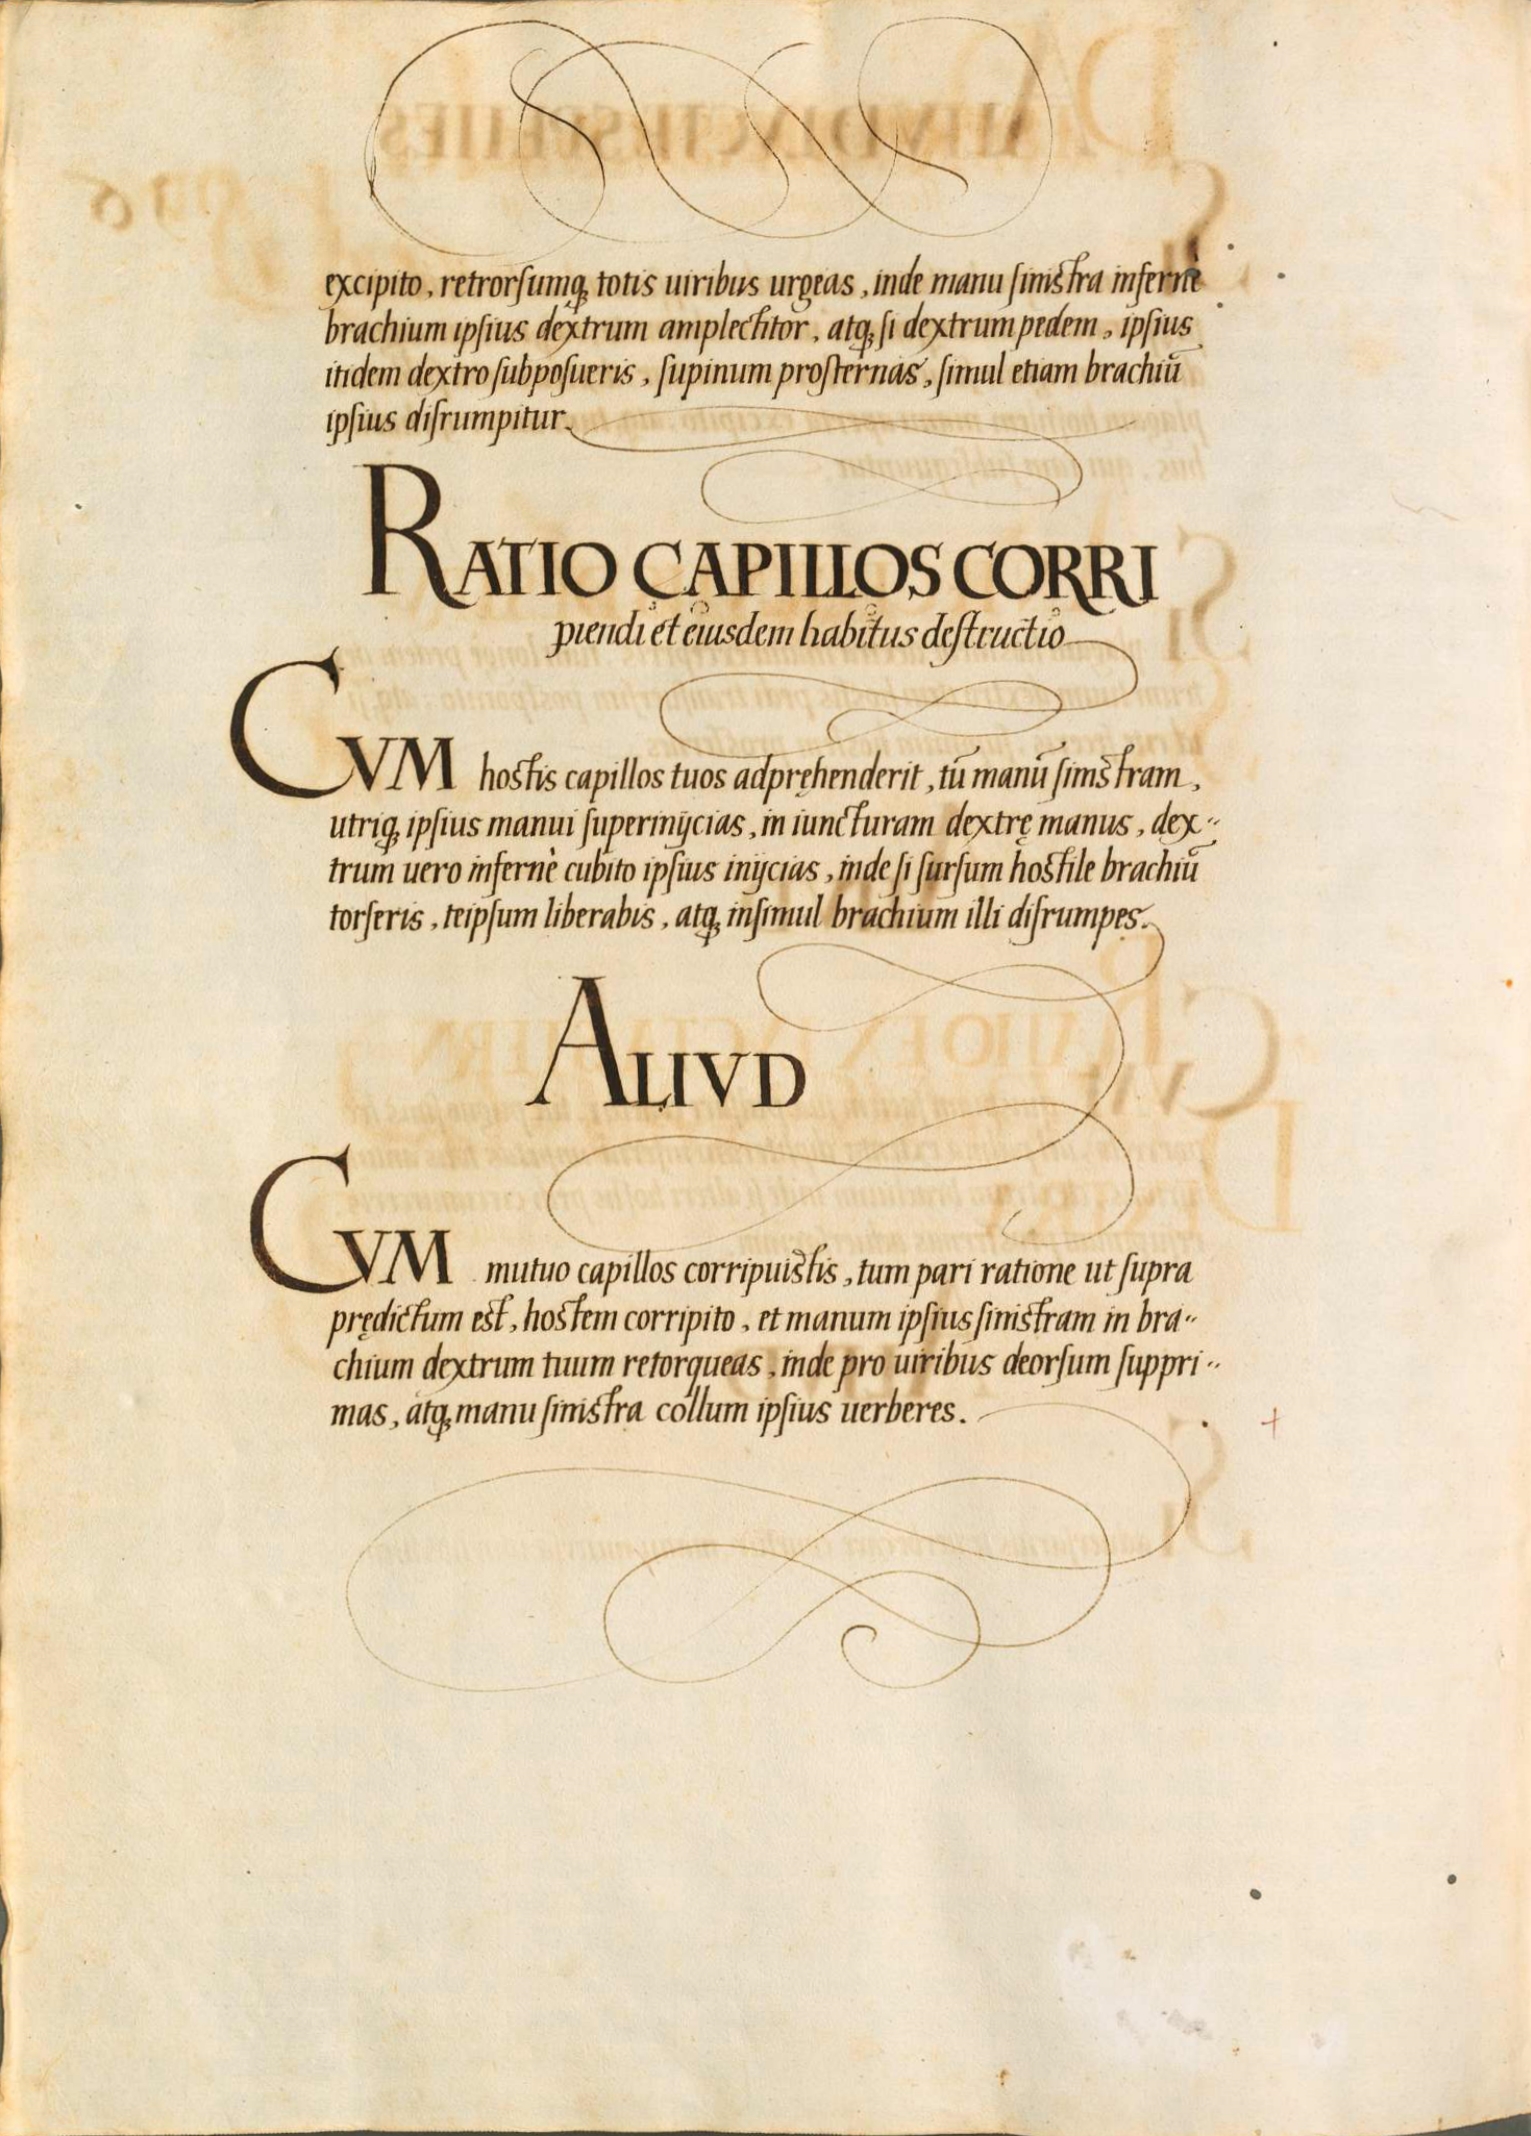 excipito, retrorſumq; totis uiribus urgeas, inde manu ſiniſtra infernè
brachium ipſius dextrum amplectitor, atq; ſi dextrum pedem, ipſius
itidem dextro ſubpoſueris, ſupinum proſternas, ſimul etiam brachiū
ipſius diſrumpitur.
RATIO CAPILLOS CORRI
piendi et eiusdem habitus deſtructio
CVM hoſtis capillos tuos adpręhenderit, tū manū ſiniſtram,
utriq; ipſius manui ſuperinijcias, in iuncturam dextrę manus, dex-
trum uero infernè cubito ipſius inijcias, inde ſi ſurſum hoſtile brachiū
torſeris, teipſum liberabis, atq; inſimul brachium illi diſrumpes.
ALIVD
CVM mutuo capillos corripuiſtis, tum pari ratione ut ſupra
prędictum eſt, hoſtem corripito, et manum ipſius ſiniſtram in bra-
chium dextrum tuum retorqueas, inde pro uiribus deorſum ſuppri-
mas, atq; manu ſiniſtra collum ipſius uerberes.